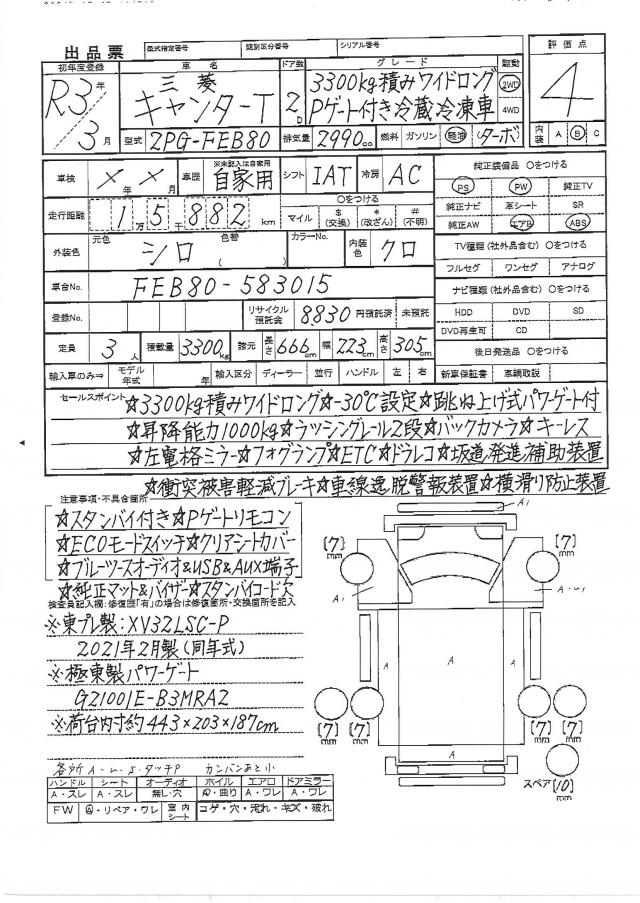 出品票 型式指定番号 類別区分番号 シリアル番号
初年度登録 車名 ドア数 グレード 駆動 評価点
R3年 三菱 3300kg積みワイドロング 2WD
キャンターT 2D Pゲート付き冷蔵冷凍車 4WD 4
3月 型式 2PG-FEB80 排気量 2990cc 燃料 ガソリン 軽油 ターボ 内装 A B C
車検 ×年×月 車歴 ※未記入は自家用 自家用 シフト IAT 冷房 AC 純正装備品 〇をつける
PS PW 純正TV
走行距離 1万5千882km 〇をつける マイル $(交換) *(改ざん) #(不明) 純正ナビ 革シート SR
純正AW エアB ABS
外装色 元色 シロ 色替 ( ) カラーNo. 内装色 クロ TV種類(社外品含む)〇をつける
フルセグ ワンセグ アナログ
車台No. FEB80-583015 ナビ種類(社外品含む)〇をつける
登録No. リサイクル預託金 8,830円預託済 未預託 HDD DVD SD
DVD再生可 CD
定員 3人 積載量 3300kg 諸元 長さ 666cm 幅 223cm 高さ 305cm 後日発送品 〇をつける
輸入車のみ⇒ モデル年式 年 輸入区分 ディーラー 並行 ハンドル 左 右 新車保証書 車輌取説
セールスポイント ☆3300kg積みワイドロング☆-30℃設定☆跳ね上げ式パワーゲート付
☆昇降能力1000kg☆ラッシングレール2段☆バックカメラ☆キーレス
☆左電格ミラー☆フォグランプ☆ETC☆ドラレコ☆坂道発進補助装置
☆衝突被害軽減ブレーキ☆車線逸脱警報装置☆横滑り防止装置
注意事項・不具合箇所
☆スタンバイ付き☆Pゲートリモコン
☆ECOモードスイッチ☆クリアシートカバー
☆ブルーツースオーディオ&USB&AUX端子
☆純正マット&バイザ☆スタンバイコード欠
検査員記入欄:修復歴「有」の場合は修復箇所・交換箇所を記入
※東プレ製:XV32LSC-P
2021年2月製(同年式)
※極東製パワーゲート
GZ1001E-B3MRA2
※荷台内寸約443×203×187cm
各所A・U・S・タッチP カンバンあと小
ハンドル シート オーディオ ホイル エアロ ドアミラー
A・スレ A・スレ 無し・穴 A・曲り A・ワレ A・ワレ
FW A・リペア・ワレ 室内シート コゲ・穴・汚れ・キズ・破れ
A1
[7]mm [7]mm
A1 A・U1
A A A
[7]mm [7]mm [7]mm [7]mm
A
スペア[10]mm